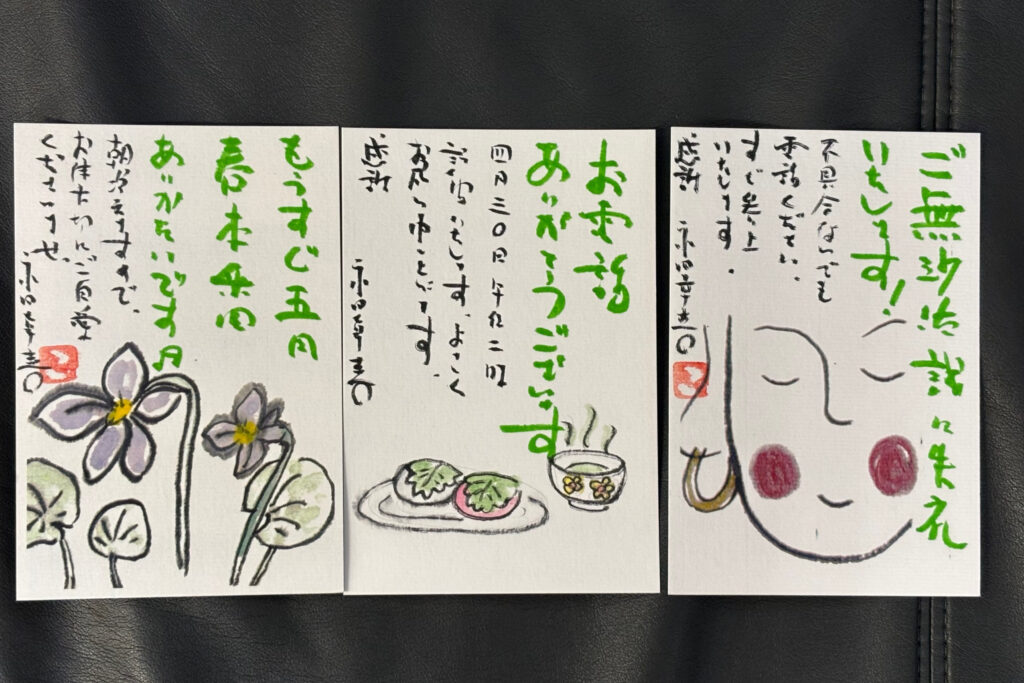 ご無沙汰誠に失礼
いたします!
不具合ないでも
電話ください。
すぐ参上
いたします.
感謝
お電話
ありがとうございます
四月三〇日午后二時
訪問いたします。よろしく
お願い申し上げます。
感謝
もうすぐ五月
春本
ありがたいです
朝冷えますので、
お体大切にご自愛
くださいませ。